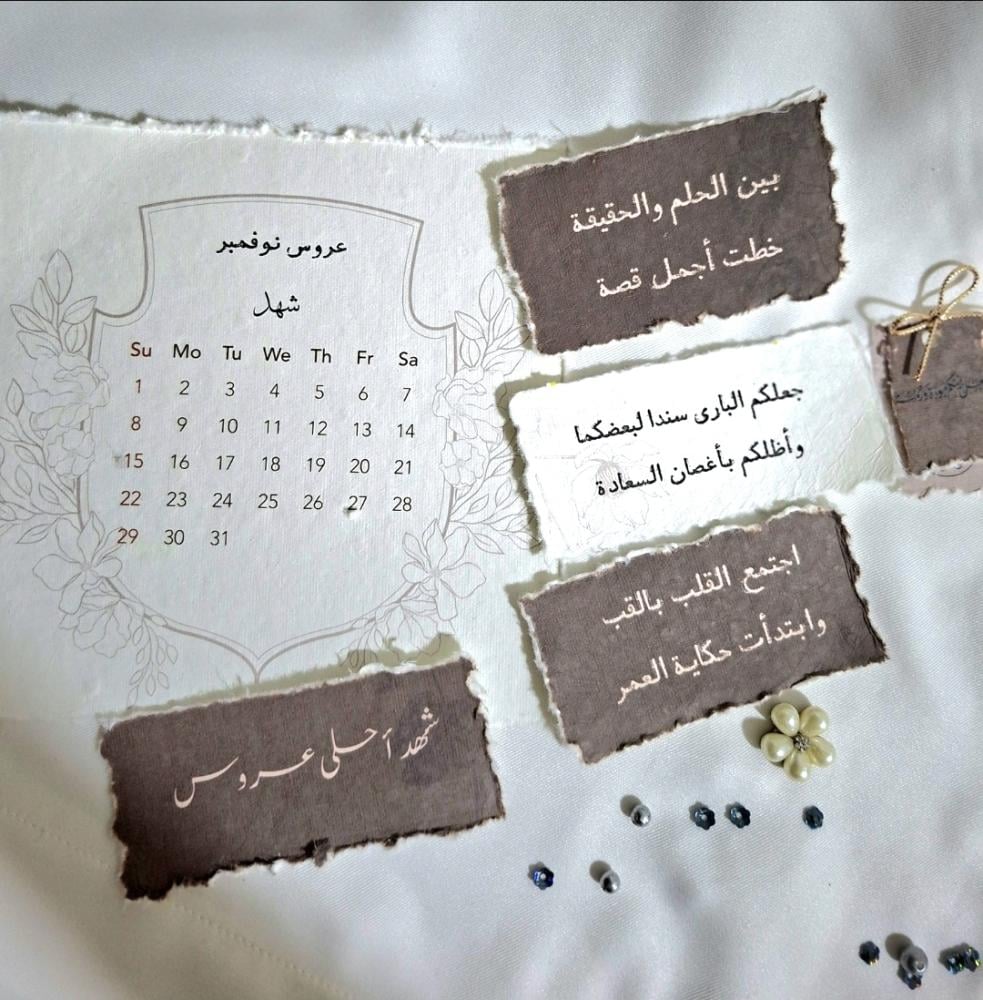 عروس نوفمبر
شهل
Su Mo Tu We Th Fr Sa
1 2 3 4 5 6 7
8 9 10 11 12 13 14
15 16 17 18 19 20 21
22 23 24 25 26 27 28
29 30 31
بين الحلم والحقيقة
خطت أجمل قصة
جعلكم البارى سندا لبعضكما
وأظلكم بأغصان السعادة
اجتمع القلب بالقب
وابتدأت حكاية العمر
شهد أحلى عروس